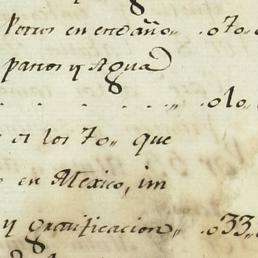 Potros en ere año .. o70..
partos y Agua
. . . . . . .. . o1o..
los 70.. que
en Mexico, im
y gratificacion.. . o33..